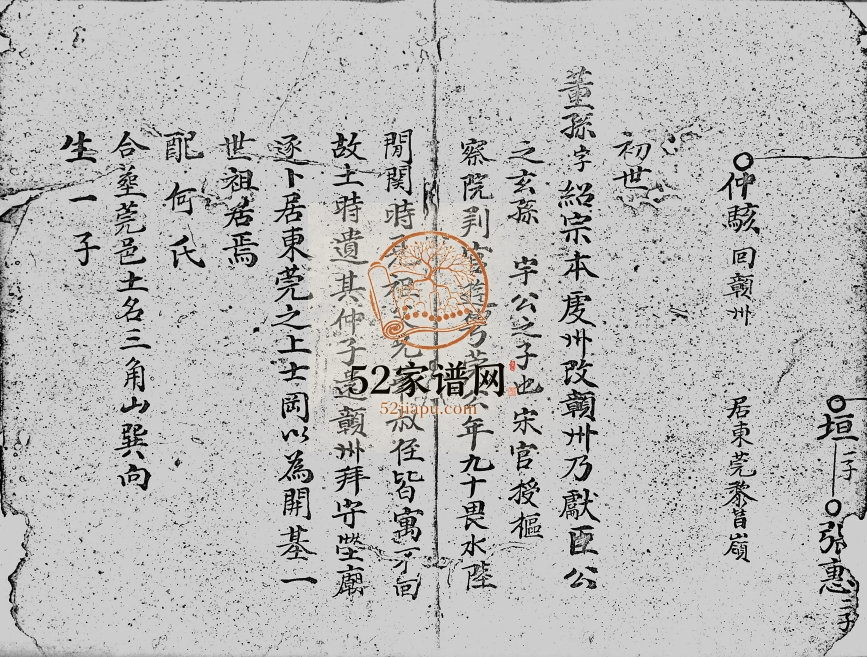 垣 一子
張惠 二子
居東莞黎昔嶺
仲駭 回贛州
初世
董孫字紹宗本虔州改贛州乃獻臣公
之玄孫 宇公之子也 宋官授樞
察院判 年九十畏水陸
間関時 叔侄皆寓 不回
故土時遺其仲子 贛州拜守塋廟
逐卜居東莞之上士岡以為開基一
世祖居焉
配何氏
合塟莞邑土名三角山巽向
生一子
52家谱网
52jiapu.com